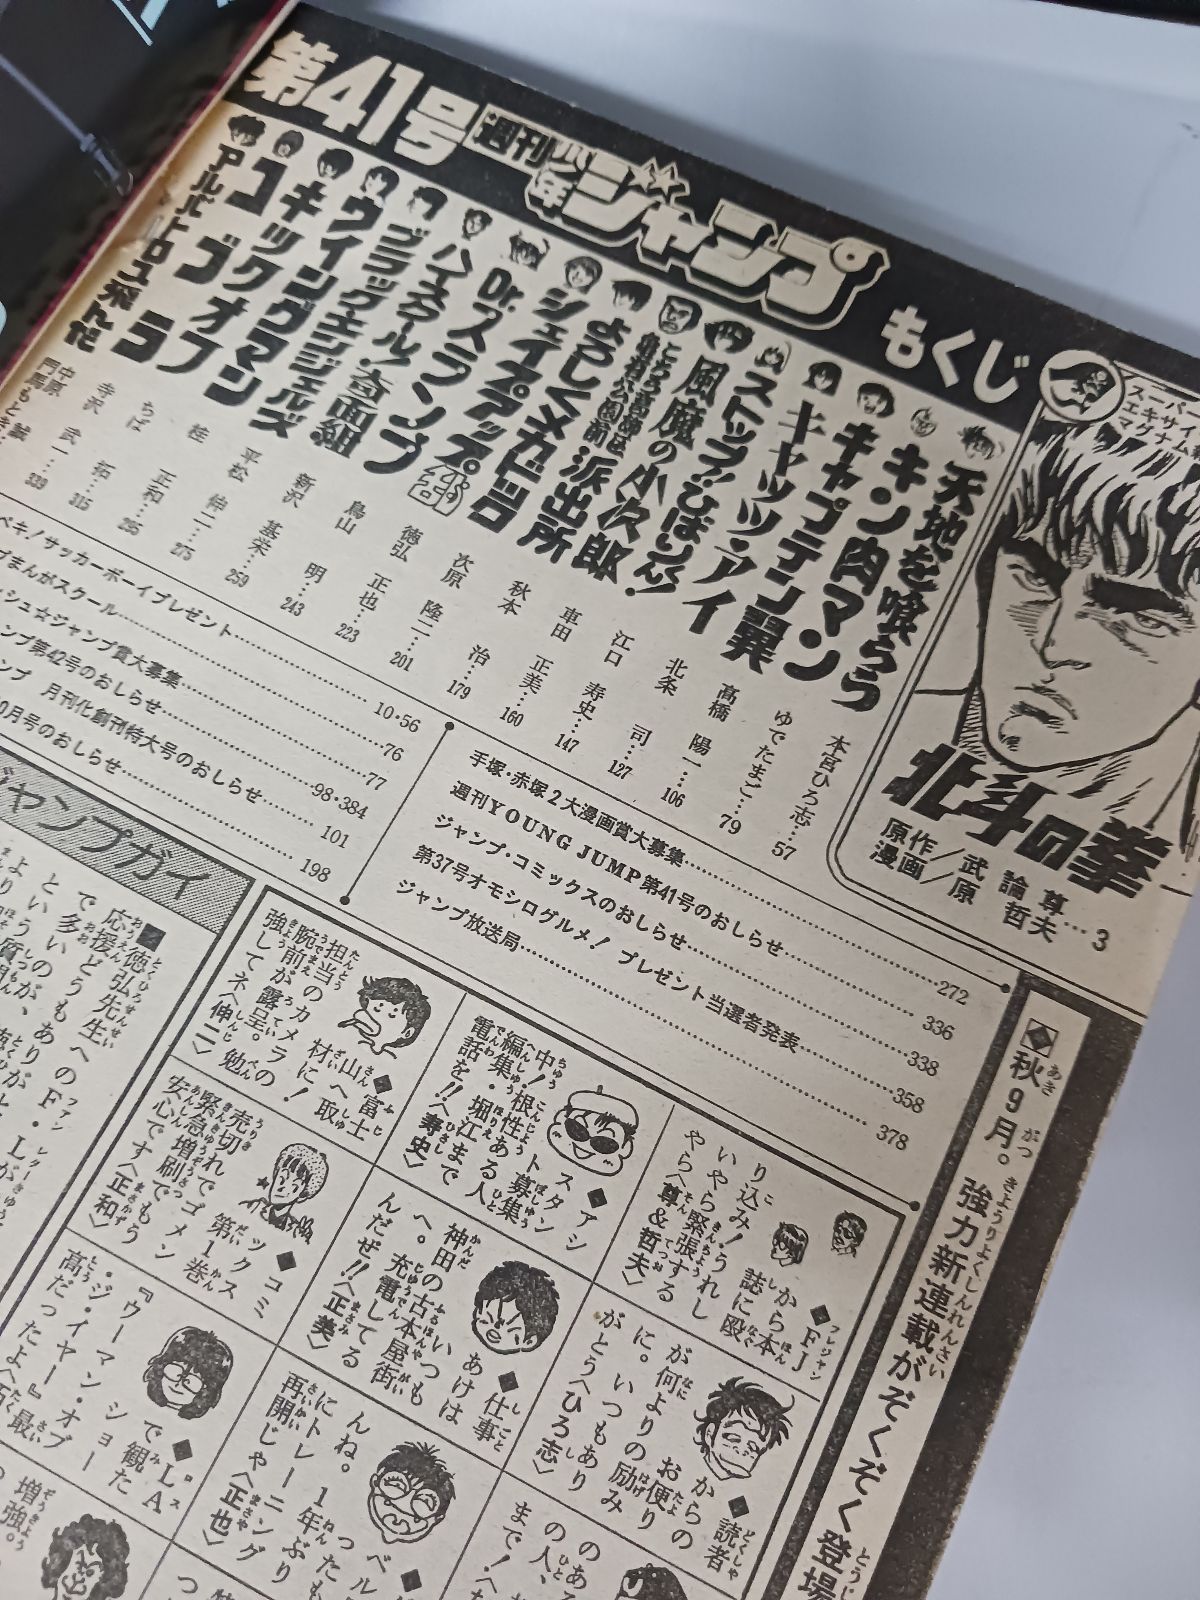 第41号
週刊少年ジャンプ
もくじ
スーパー
エキサイ
マグナム
北斗の拳
原作／武論尊…3
漫画／原哲夫
天地を喰らう 本宮ひろ志…57
キン肉マン ゆでたまご…79
キャプテン翼 高橋陽一…106
キャッツ・アイ 北条司…127
ストップ!!ひばりくん! 江口寿史…147
風魔の小次郎 車田正美…160
こちら葛飾区亀有公園前派出所 秋本治…179
よろしくメカドック 次原隆二…201
シェイプアップ乱 徳弘正也…223
Dr.スランプ 鳥山明…243
ハイスクール!奇面組 新沢基栄…259
ブラック・エンジェルズ 平松伸二…275
ウイングマン 桂正和…295
キックオフ ちば拓…315
コブラ 寺沢武一
アルバトロス飛んだ 中原誠 門馬もとき…339
ペキノサッカーボーイプレゼント…10・56
プまんがスクール…76
ッシュ☆ジャンプ賞大募集…77
ンプ第42号のおしらせ…98・384
ンプ 月刊化創刊特大号のおしらせ…101
0月号のおしらせ…198
手塚・赤塚2大漫画賞大募集…272
週刊YOUNG JUMP第41号のおしらせ…336
ジャンプ・コミックスのおしらせ…338
第37号オモシログルメ! プレゼント当選者発表…358
ジャンプ放送局…378
◆秋9月。強力新連載がぞくぞく登場
ジャンプガイ
■徳弘先生への
応援どうもありが
で多いのF・Lが
◆FJから本誌に殴り込み!うれしいやら緊張するやら〈尊&哲夫〉
◆読者からのお便りが何よりの励みに。いつもありがとう〈ひろ志〉
◆アシスタント募集中!根性ある人、編集・堀江まで電話を!!〈寿史〉
◆仕事あけはいつも神田の古本屋街へ。充電してるんだぜ!!〈正美〉
◆富士山へ取材に!担当のカメラの腕前が露呈。勉強してネ〈伸二〉
◆コミックス第1巻売切れでゴメン緊急増刷でもう安心です〈正和〉
◆LAで観たショー『ウーマン・オブ・ジ・イヤー』最高だったよ
つったもんね。1年ぶりにトレーニング再開じゃ〈正也〉
増強。